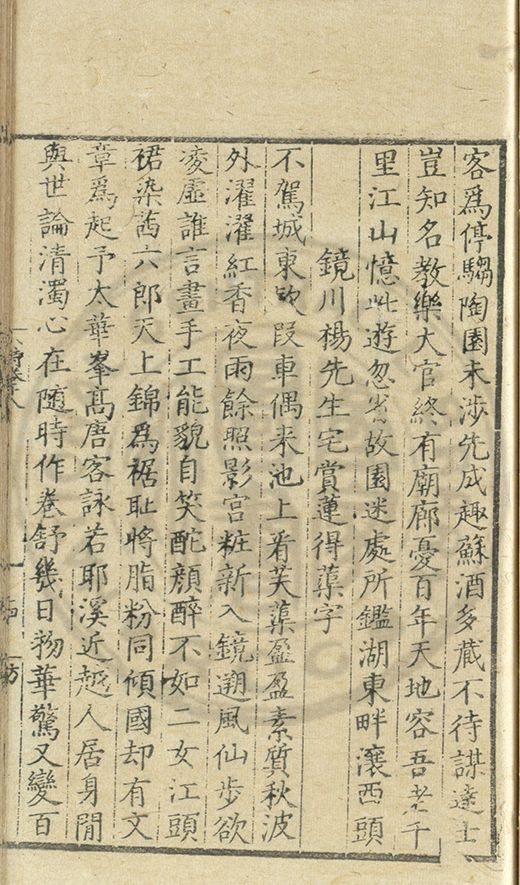 客爲停驂陶園未涉先成趣蘇酒多蔵不待謀達士
豈知名教樂大官終有廟廊憂百年天地容吾老千
里江山憶此遊忽省故園迷處所鑑湖東畔瀼西頭
鏡川楊先生宅賞蓮得蕖字
不駕城東欵段車偶来池上看芙蕖盈盈素質秋波
外濯濯紅香夜雨餘照影宫粧新入鏡遡風仙歩欲
凌虚誰言畫手工能貌自笑酡顔醉不如二女江頭
裙染茜六郎天上錦爲裾耻將脂粉同傾國却有文
章爲起予太華峯髙唐客詠若耶溪近越人居身閒
與世論清濁心在隨時作卷舒幾日物華驚又變百